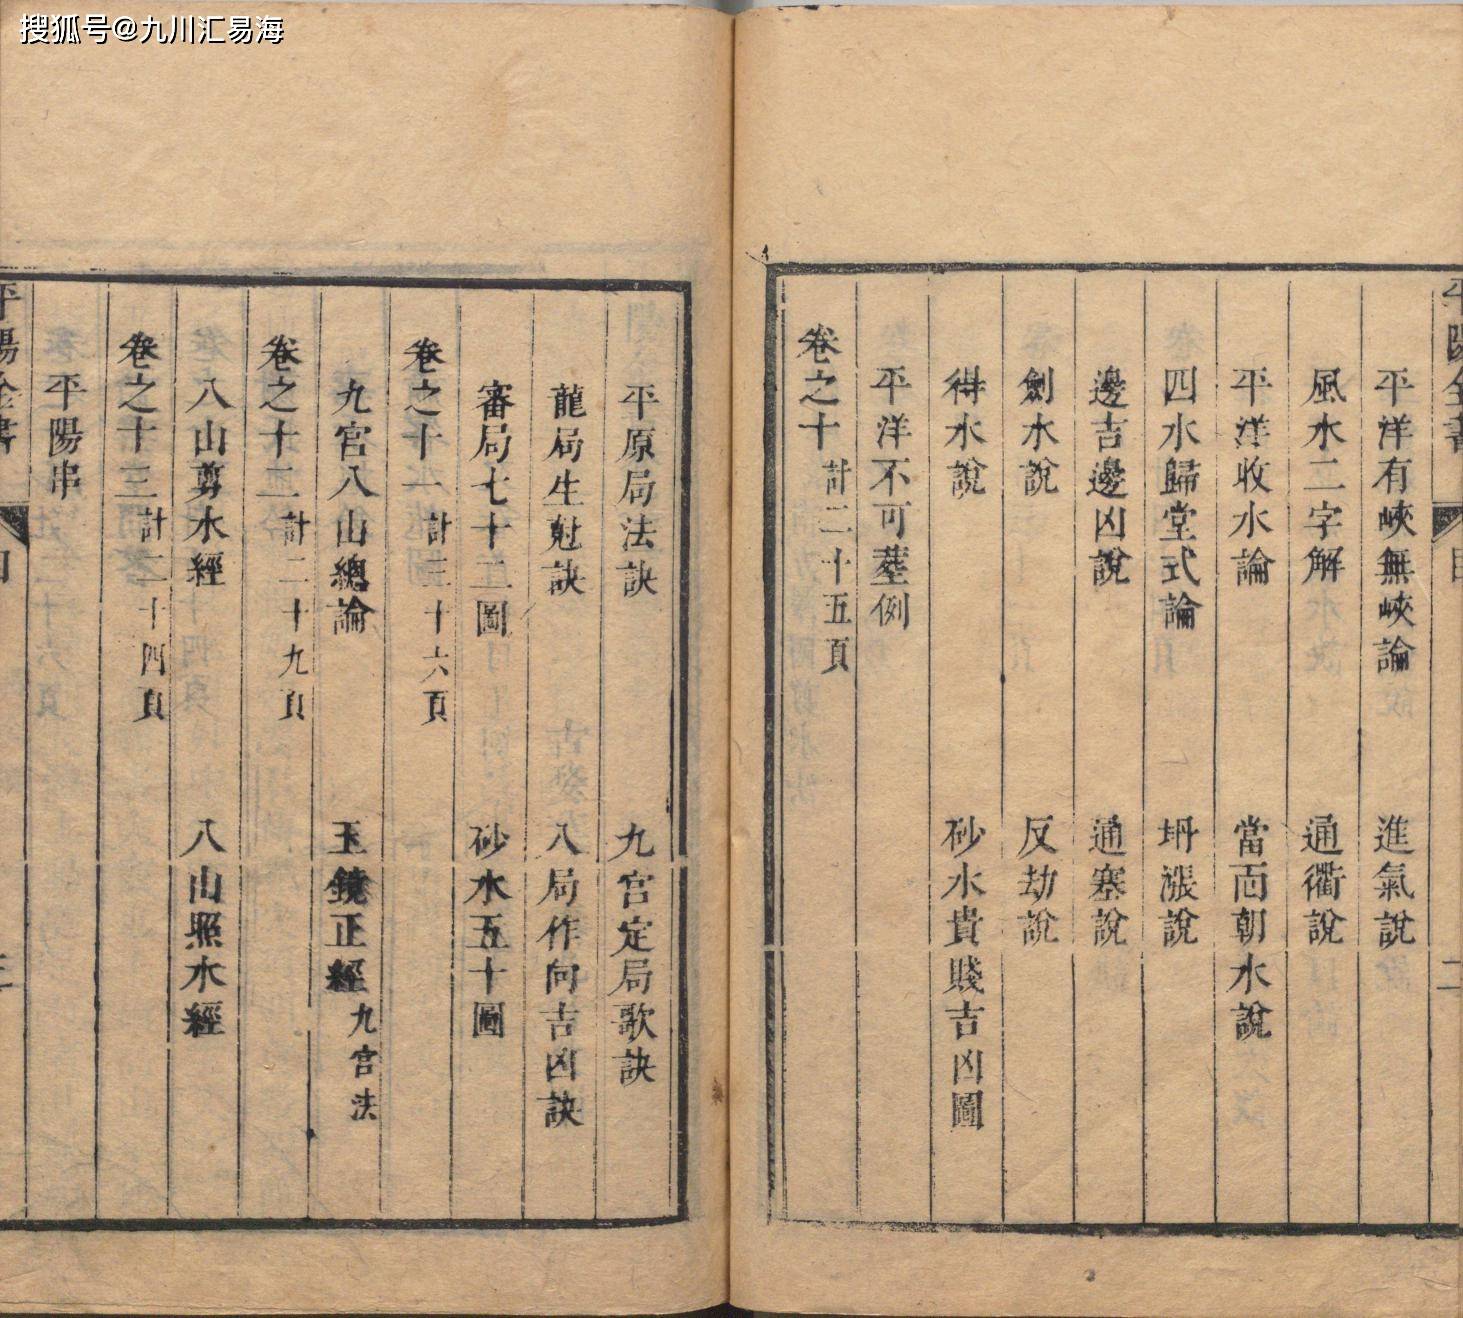 搜狐号@九川汇易海
平陽全書
目
二
平洋有峽無峽論 進氣說
風水二字解 通衢說
平洋收水論 當面朝水說
四水歸堂式論 坍漲說
邊吉邊凶說 通塞說
劍水說 反劫說
得水說 砂水貴賤吉凶圖
平洋不可塟例
卷之十 計二十五頁
平原局法訣 九宮定局歌訣
龍局生尅訣 八局作向吉凶訣
審局七十二圖 砂水五十圖
卷之十一 計三十六頁
九宮八山總論 玉鏡正經 九宮法
卷之十二 計二十九頁
八山剪水經 八山照水經
卷之十三 計二十四頁
平陽串
平陽全書
目
三